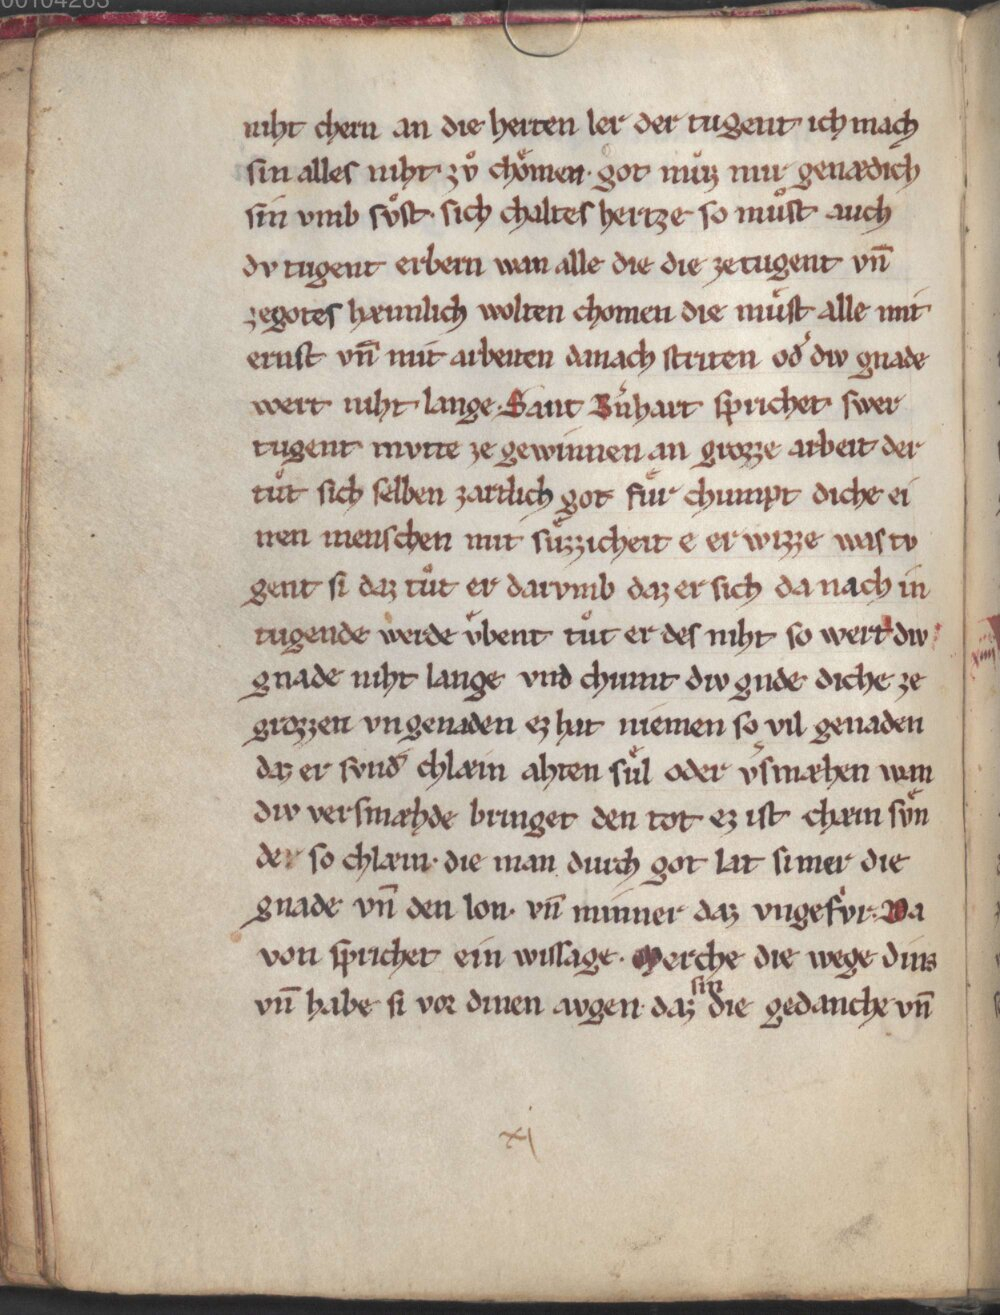 00104263
niht chern an die herten ler der tugent ich mach
sin alles niht zů chömen· got můz mir genædich
sin vmb svͦst· sich chaltes hertze so můst auch
dv tugent erbern wan alle die die zetugent vn̄
zegotes hæimlich wolten chomen die můst alle mit
ernst vn̄ mit arbeiten danach striten od͛ div gnade
wert niht lange· Sant B͛nhart sprichet swer
tugent mvtte ze gewinnen an grozze arbeit der
tůt sich selben zartlich got fuͤr chumpt diche ei
nen menschen mit suͤzzicheit e er wizze was tv
gent si daz tůt er darvmb daz er sich da nach in
tugende werde vͤbent tůt er des niht so wert div
gnade niht lange vnd chumt div gnde diche ze
grozzen vngenaden ez hat niemen so vil genaden
daz er svnd͛ chlæin ahten suͤl oder v͛smæhen wan
div versmæhde bringet den tot ez ist chæin svͤn
de so chlæin· die man durch got lat si mer die
gnade vn̄ den lon· vn̄ minner daz vngefvͤr· Da
von sprichet ein wissage· Merche die wege dins
sin
vn̄ habe si vor dinen avgen· daz die gedanche vn̄
xj